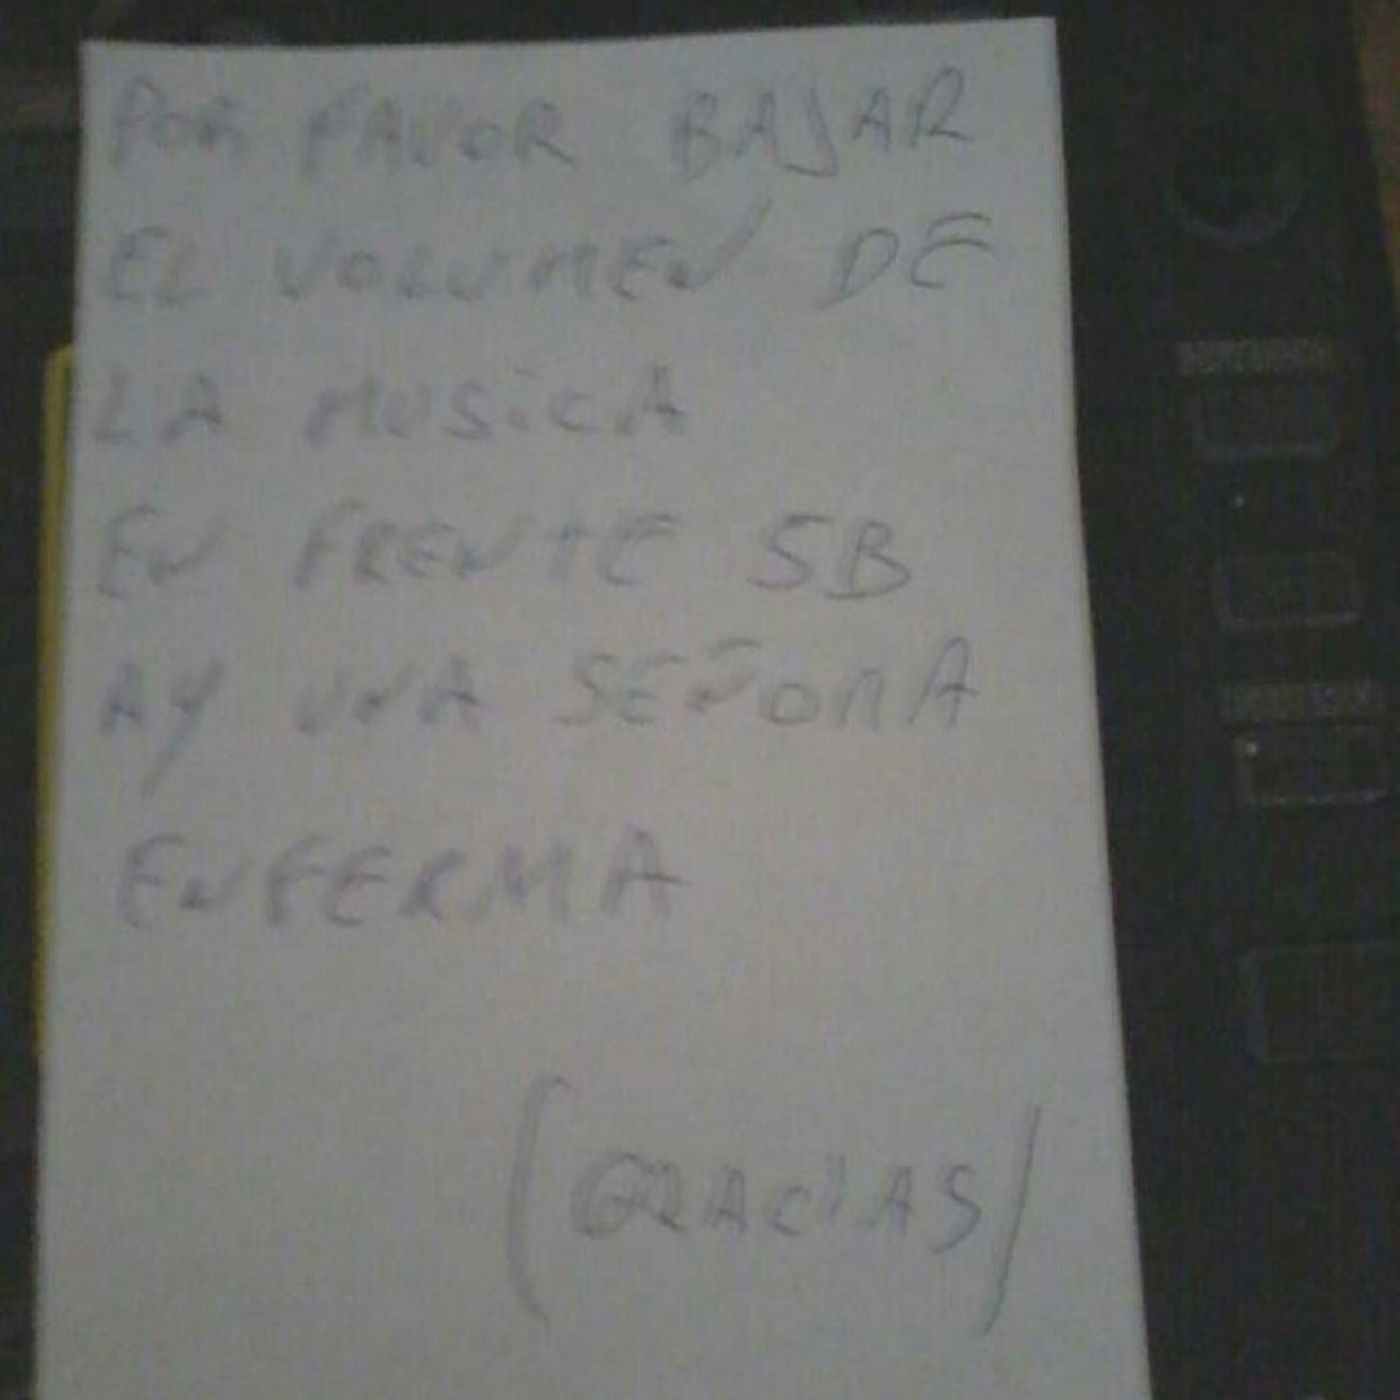 POR FAVOR BAJAR
EL VOLUMEN DE
LA MUSICA
EN FRENTE 5B
AY UNA SEÑORA
ENFERMA
(GRACIAS)